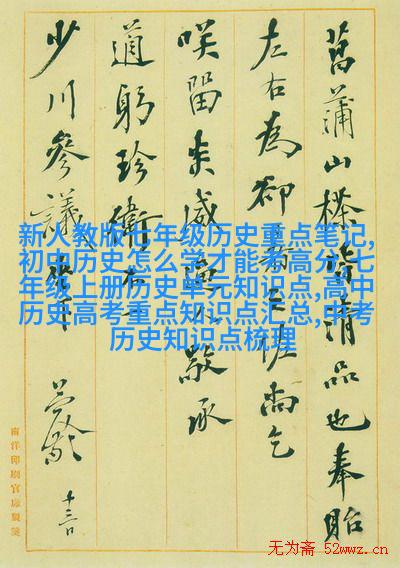 菖蒲山皆清品也奉貽
左右為卻之佐尚乞
咲留敬承
適躬珍衛不
少川參議
敬 十三日
南洋印刷官廠製箋
新人教版七年级历史重点笔记,
初中历史怎么学才能考高分,七
年级上册历史单元知识点,高中
历史高考重点知识点汇总,中考
历史知识点梳理
无为斋 52wwz.cn